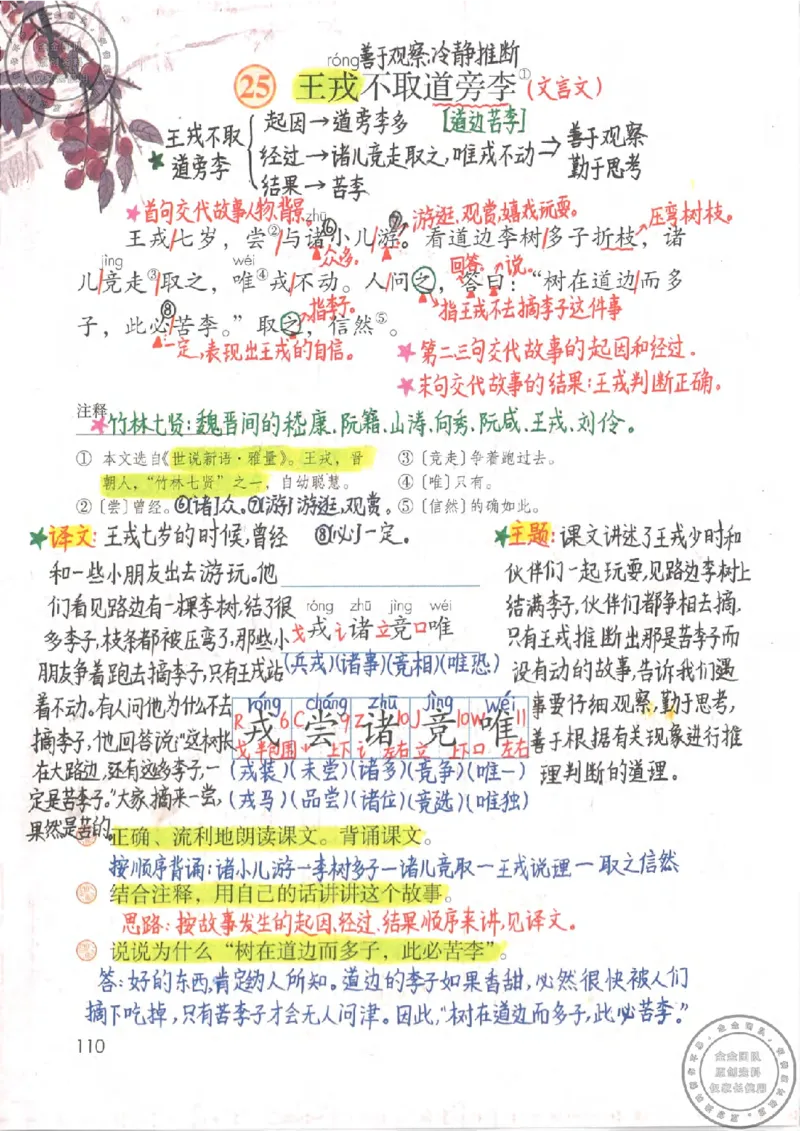 善于观察,冷静推断
róng
25 王戎不取道旁李①(文言文)
[道边苦李]
王戎不取道旁李
起因→道旁李多
经过→诸儿竞走取之,唯戎不动
结果→苦李
⇒善于观察 勤于思考
★首句交代故事人物,背景。
游逛,观赏,嬉戏玩耍。
压弯树枝。
zhū ⑥ ⑦
王戎/七岁,尝②/与诸小儿/游。看道边李树/多子折枝,诸
众多。
回答。 说。
jìng wéi
儿/竞走③/取之,唯④戎/不动。人/问之,答曰:“树在道边/而多
指李子。
指王戎不去摘李子这件事
⑧
子,此必/苦李。”取之,信然⑤。
一定,表现出王戎的自信。
★第二三句交代故事的起因和经过.
★末句交代故事的结果:王戎判断正确。
注释
★竹林七贤:魏晋间的嵇康、阮籍、山涛、向秀、阮咸、王戎、刘伶。
① 本文选自《世说新语·雅量》。王戎,晋
朝人,“竹林七贤”之一,自幼聪慧。
② 〔尝〕曾经。⑥[诸]众。⑦[游]游逛,观赏。
③〔竞走〕争着跑过去。
④〔唯〕只有。
⑤〔信然〕的确如此。
⑧[必]一定。
★译文:王戎七岁的时候,曾经
和一些小朋友出去游玩。他
们看见路边有一棵李树,结了很
多李子,枝条都被压弯了,那些小
朋友争着跑去摘李子,只有王戎站
着不动。有人问他为什么不去
摘李子,他回答说:“这树长
在大路边,还有这多李子,一
定是苦李子。”大家摘来一尝,
果然是苦的。
róng zhū jìng wéi
戈戎 讠诸 立竞 口唯
(兵戎)(诸事)(竞相)(唯恐)
róng cháng zhū jìng wéi
R 6 C 9 Z 10 J 10 W 11
戎 尝 诸 竞 唯
戈 半包围 ⺌ 上下 讠 左右 立 上下 口 左右
(戎装)(未尝)(诸多)(竞争)(唯一)
(戎马)(品尝)(诸位)(竞选)(唯独)
★主题:课文讲述了王戎少时和
伙伴们一起玩耍,见路边李树上
结满李子,伙伴们都争相去摘,
只有王戎推断出那是苦李子而
没有动的故事,告诉我们遇
事要仔细观察,勤于思考,
善于根据有关现象进行推
理判断的道理。
正确、流利地朗读课文。背诵课文。
按顺序背诵:诸小儿游→李树多子—诸儿竞取—王戎说理—取之信然
结合注释,用自己的话讲讲这个故事。
思路:按故事发生的起因、经过、结果顺序来讲,见译文。
说说为什么“树在道边而多子,此必苦李”。
答:好的东西,肯定为人所知。道边的李子如果香甜,必然很快被人们
摘下吃掉,只有苦李子才会无人问津。因此,“树在道边而多子,此必苦李。”
110